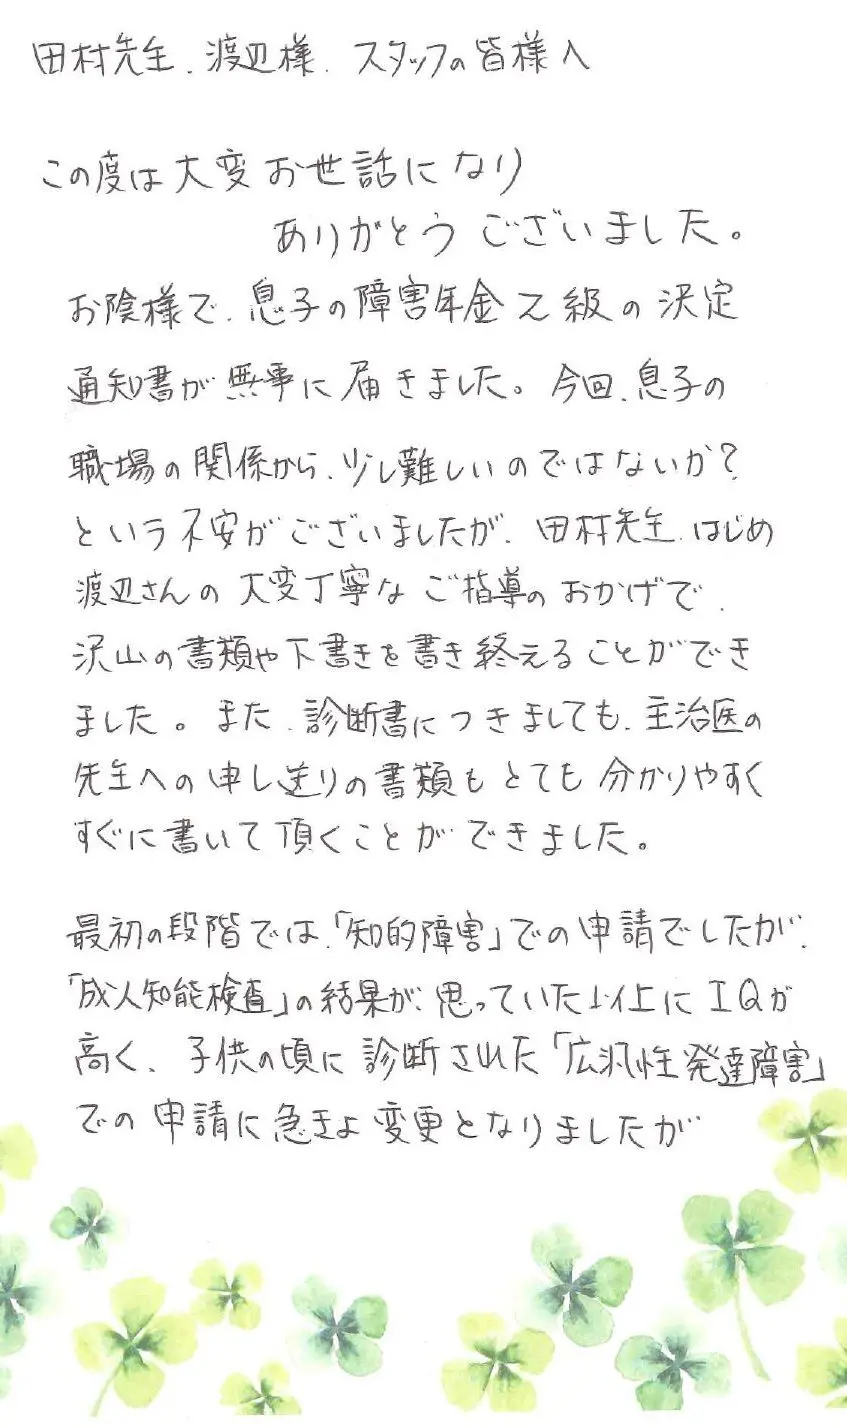 田村先生、渡辺様、スタッフの皆様へ
この度は大変お世話になり
ありがとうございました。
お陰様で、息子の障害年金2級の決定
通知書が無事に届きました。今回、息子の
職場の関係から、少し難しいのではないか?
という不安がございましたが、田村先生、はじめ
渡辺さんの大変丁寧なご指導のおかげで、
沢山の書類や下書きを書き終えることができ
ました。また、診断書につきましても、主治医の
先生への申し送りの書類もとても分かりやすく
すぐに書いて頂くことができました。
最初の段階では、「知的障害」での申請でしたが、
「成人知能検査」の結果が、思っていた以上にIQが
高く、子供の頃に診断された「広汎性発達障害」
での申請に急きょ変更となりましたが